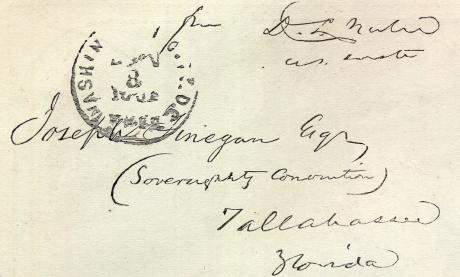 from D. L. Yulee
U.S. Senate
WASHIN
FREE
Joseph Finegan Esqr
(Sovereighty Convention)
Tallahassee
Florida